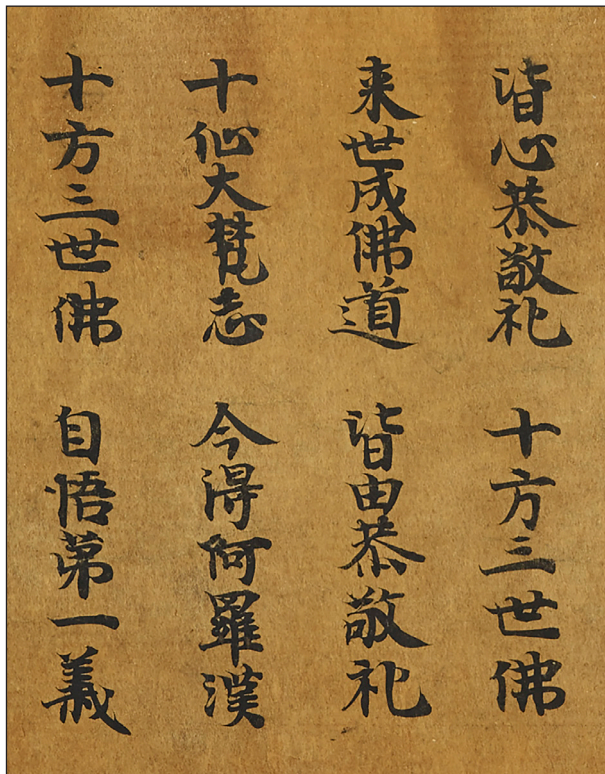 皆心恭敬礼 十方三世佛
来世成佛道 皆由恭敬礼
十仙大梵志 今得何羅漢
十方三世佛 自悟苐一義